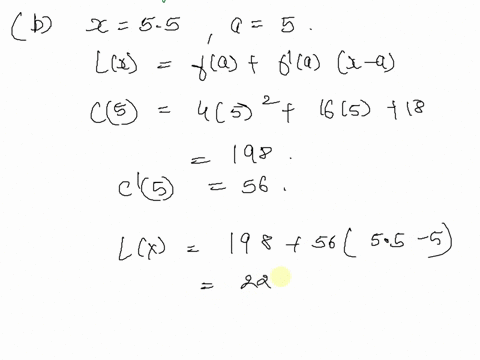 (b) x = 5.5 , a = 5 .
L(x) = f(a) + f'(a) (x-a)
C(5) = 4(5)² + 16(5) + 18
= 198 .
C'(5) = 56 .
L(x) = 198 + 56 ( 5.5 - 5)
= 22